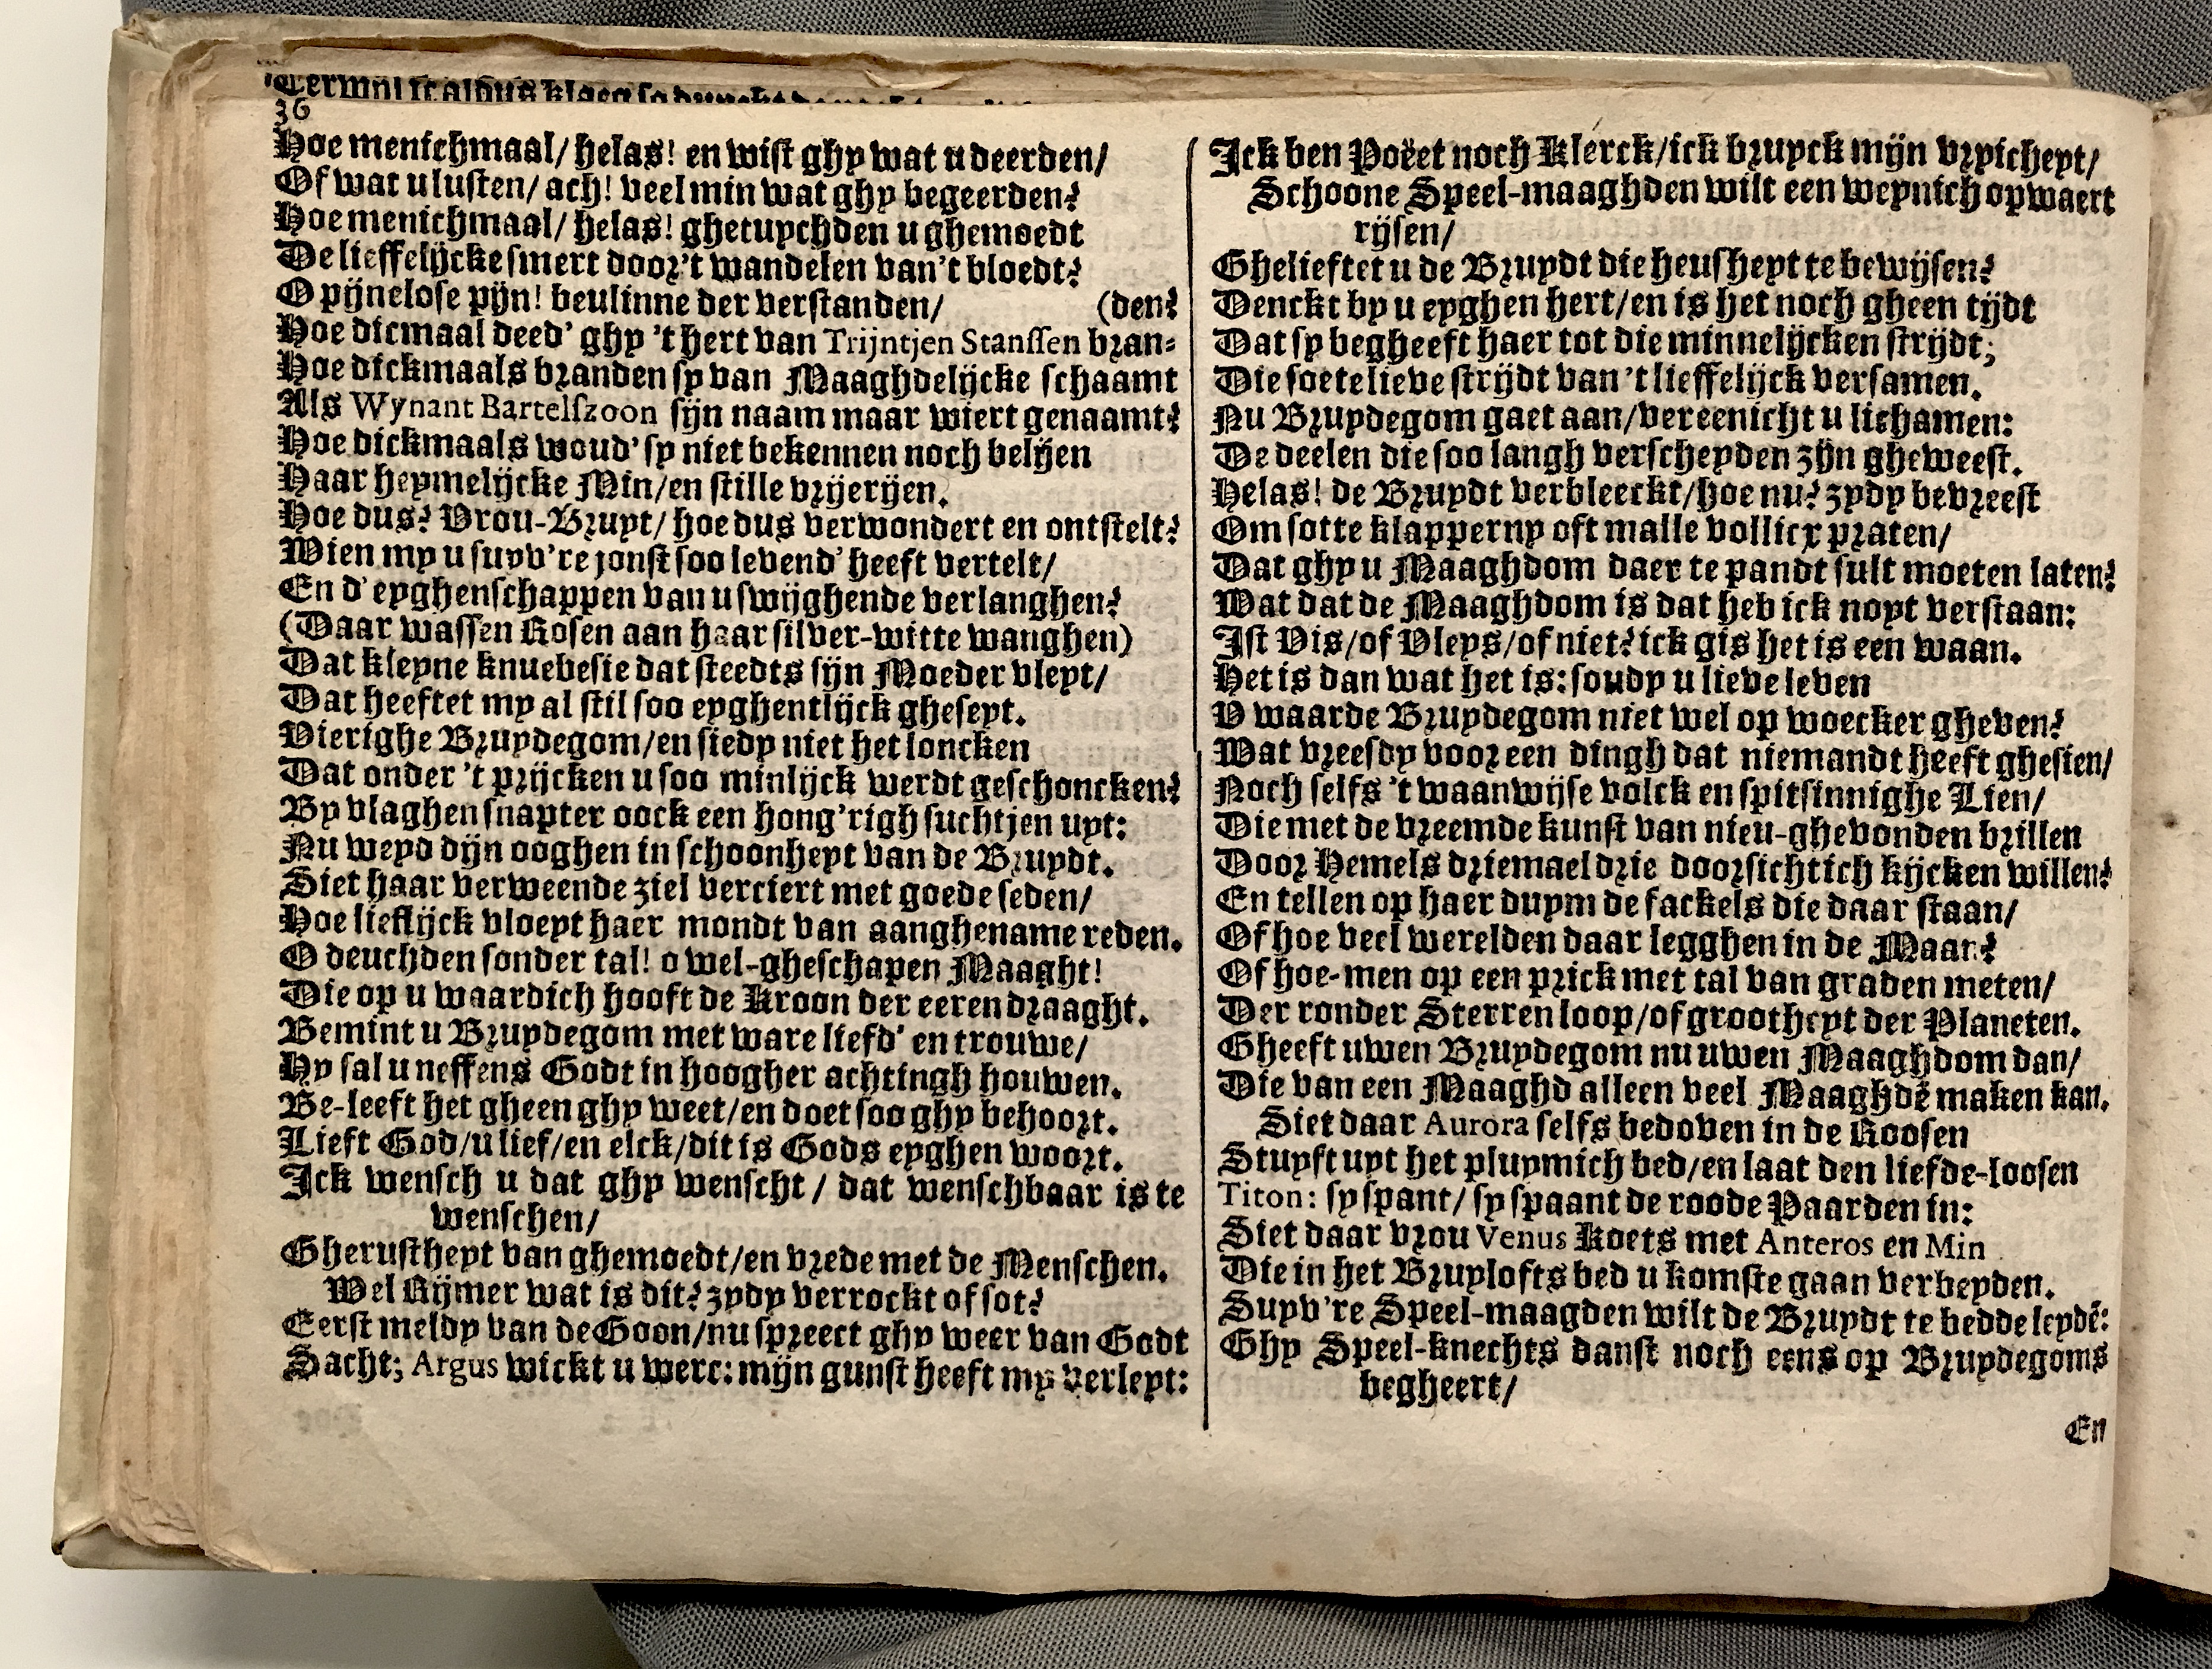 36
Hoe menichmaal/ helas! en wist ghy wat u deerden/
Of wat u lusten/ ach! veel min wat ghy begeerden?
Hoe menichmaal/ helas! ghetuychden u ghemoedt
De lieffelijcke smert door 't wandelen van 't bloedt?
O pijnelose pijn! beulinne der verstanden/ (den?
Hoe dicmaal deed' ghy 't hert van Trijntjen Stanssen bran-
Hoe dickmaals branden sy van Maaghdelijcke schaamt
Als Wynant Bartelszoon sijn naam maar wiert genaamt?
Hoe dickmaals woud' sy niet bekennen noch belijen
Haar heymelijcke Min/ en stille vrijerijen.
Hoe dus? Vrou-Bruyt/ hoe dus verwondert en ontstelt?
Wien my u suyv're jonst soo levend' heeft vertelt/
En d' eyghenschappen van u swijghende verlanghen?
(Daar wassen Rosen aan haar silver-witte wanghen)
Dat kleyne knuevesie dat steedts sijn Moeder vleyt/
Dat heeftet my al stil soo eyghentlijck gheseyt.
Vierighe Bruydegom/ en siedy niet het loncken
Dat onder 't prijcken u soo minlijck werdt geschoncken?
By vlaghen snapter oock een hong'righ suchtjen uyt:
Nu weyd dijn ooghen in schoonheyt van de Bruydt.
Siet haar verweende ziel verciert met goede seden/
Hoe lieflijck vloeyt haer mondt van aanghename reden.
O deuchden sonder tal! o wel-gheschapen Maaght!
Die op u waardich hooft de Kroon der eeren draaght.
Bemint u Bruydegom met ware liefd' en trouwe/
Hy sal u neffens Godt in hoogher achtingh houwen.
Be-leeft het gheen ghy weet/ en doet soo ghy behoort.
Lieft God/ u lief/ en elck/ dit is Gods eyghen woort.
Ick wensch u dat ghy wenscht/ dat wenschbaar is te
wenschen/
Gherustheyt van ghemoedt/ en vrede met de Menschen.
Wel Rijmer wat is dit? zydy verrockt of sot?
Eerst meldy van de Goon/ nu spreect ghy weer van Godt
Sacht; Argus wickt u werc: mijn gunst heeft my verleyt:
Ick ben Poëet noch Klerck/ ick bruyck mijn vryicheyt/
Schoone Speel-maaghden wilt een weynich opwaert
rijsen/
Ghelieftet u de Bruydt die heusheyt te bewijsen?
Denckt by u eyghen hert/ en is het noch gheen tijdt
Dat sy begheeft haer tot die minnelijcken strijdt;
Die soete lieve strijdt van 't lieffelijck versamen.
Nu Bruydegom gaet aan/ vereenicht u lichamen:
De deelen die soo langh verscheyden zijn gheweest.
Helas! de Bruydt verbleeckt/ hoe nu? zydy bevreest
Om sotte klapperny oft malle vollicx praten/
Dat ghy u Maaghdom daer te pandt sult moeten laten?
Wat dat de Maaghdom is dat heb ick noyt verstaan:
Ist Vis/ of Vleys/ of niet? ick gis het is een waan.
Het is dan wat het is: soudy u lieve leven
V waarde Bruydegom niet wel op woecker gheven?
Wat vreesdy voor een dingh dat niemandt heeft ghesien/
Noch selfs 't waanwijse volck en spitsinnighe Lien/
Die met de vreemde kunst van nieu-ghevonden brillen
Door Hemels driemael drie doorsichtich kijcken willen?
En tellen op haer duym de fackels die daar staan/
Of hoe veel werelden daar legghen in de Maan?
Of hoe-men op een prick met tal van graden meten/
Der ronder Sterren loop/ of grootheyt der Planeten.
Gheeft uwen Bruydegom nu uwen Maaghdom dan/
Die van een Maaghd alleen veel Maaghdē maken kan.
Siet daar Aurora selfs bedoven in de Roosen
Stuyft uyt het pluymich bed/ en laat den liefde-loosen
Titon: sy spant/ sy spaant de roode Paarden in:
Siet daar vrou Venus Koets met Anteros en Min
Die in het Bruylofts bed u komste gaan verbeyden.
Suyv're Speel-maagden wilt de Bruydt te bedde leydē:
Ghy Speel-knechts danst noch eens op Bruydegoms
begheert/
En